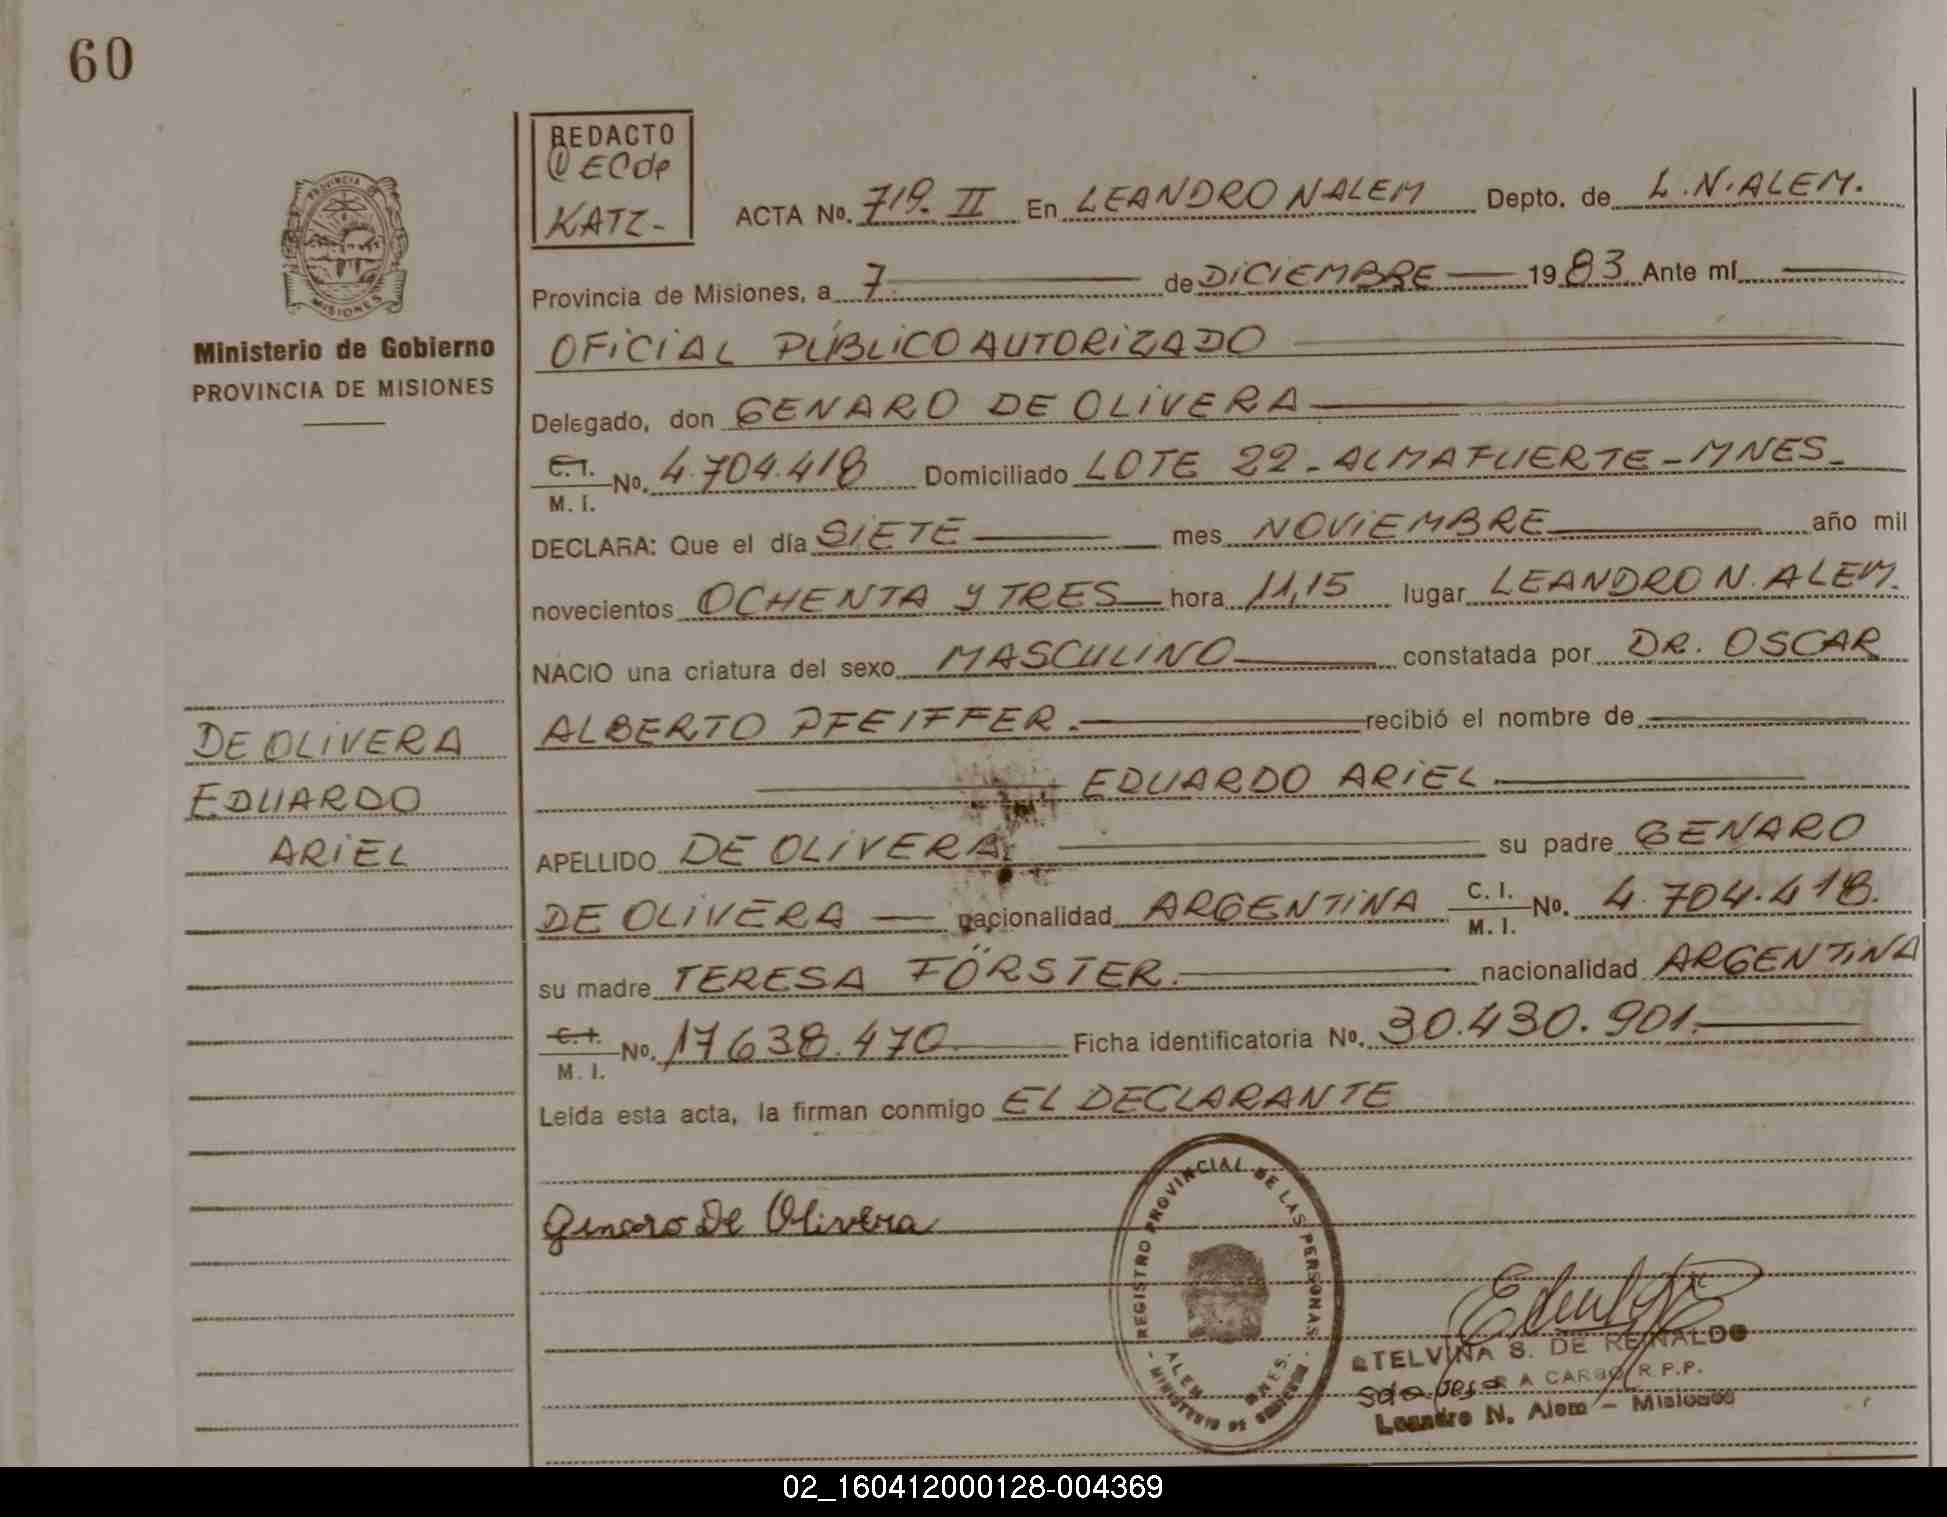 60
REDACTO
KATZ-
ACTA No. 719. II En LEANDRO N ALEM Depto. de L. N. ALEM.
PROVINCIA DE MISIONES
Provincia de Misiones, a 7 de DiCiEMBRE 1983 Ante mí
Ministerio de Gobierno
PROVINCIA DE MISIONES
OFiCiAL PÚBLiCO AUTORiZADO
Delegado, don GENARO DE OLiVERA
C.I. M. I. No. 4.704.418 Domiciliado LOTE 22 - ALMAFUERTE - MNES-
DECLARA: Que el día SIETE mes NOViEMBRE año mil
novecientos OCHENTA Y TRES hora 11,15 lugar LEANDRO N. ALEM.
NACIO una criatura del sexo MASCULiNO constatada por DR. OSCAR
ALBERTO PFEIFFER. recibió el nombre de
EDUARDO ARiEL
APELLIDO DE OLiVERA su padre GENARO
DE OLiVERA nacionalidad ARGENTiNA C. I. M. I. No. 4.704.418.
su madre TERESA FÖRSTER. nacionalidad ARGENTiNA
C.I. M. I. No. 17638.470 Ficha identificatoria No. 30.430.901.
Leida esta acta, la firman conmigo EL DECLARANTE
DE OLiVERA
EDUARDO
ARiEL
Genaro De Olivera
REGISTRO PROVINCIAL DE LAS PERSONAS
ALEM MNES.
- MINISTERIO DE GOBIERNO -
ETELVINA S. DE REINALDO
A CARGO R.P.P.
Leandro N. Alem - Misiones
02_160412000128-004369